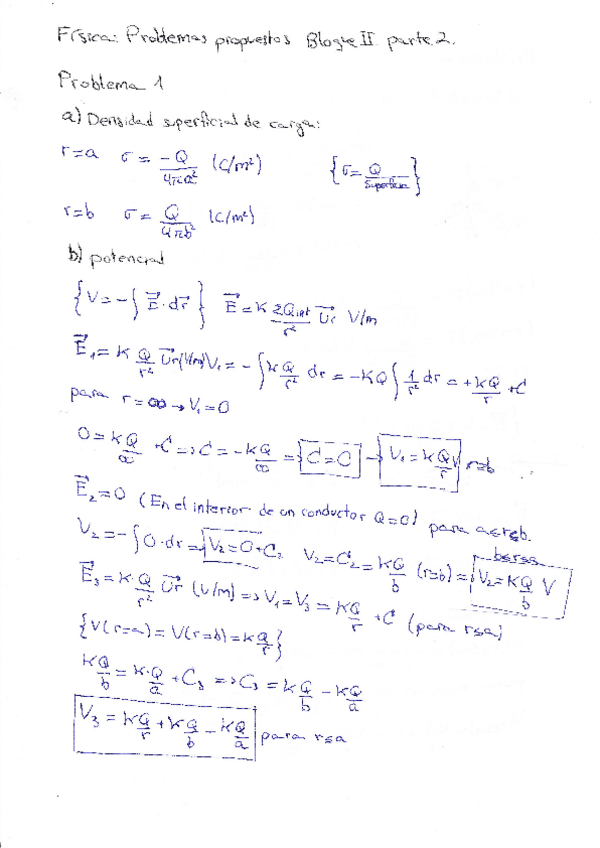 Física: Problemas propuestos Bloque II parte 2.
Problema 1
a) Densidad superficial de carga:
r=a σ = -Q/4πa² (C/m²) {σ = Q/Superficie}
r=b σ = Q/4πb² (C/m²)
b) potencial
{V = -∫ E⃗·dr⃗} E⃗ = K ΣQint/r² u⃗r V/m
E⃗₁ = K Q/r² u⃗r (V/m) V₁ = -∫ KQ/r² dr = -KQ ∫ 1/r² dr = +KQ/r + C
para r = ∞ → V₁ = 0
0 = KQ/∞ + C => C = -KQ/∞ = {C = 0} → {V₁ = K Q/r V} r≥b
E⃗₂ = 0 (En el interior de un conductor Q = 0) para a≤r≤b.
V₂ = -∫ 0·dr = V₂ = 0 + C₂ V₂ = C₂ = KQ/b (r=b) = V₂ = KQ/b V b≤r≤a
E⃗₃ = K·Q/r² u⃗r (V/m) => V₁ = V₃ = KQ/r + C (para r≤a)
{V(r=a) = V(r=b) = KQ/r}
KQ/b = K·Q/a + C₃ => C₃ = KQ/b - KQ/a
V₃ = KQ/r + KQ/b - KQ/a para r≤a